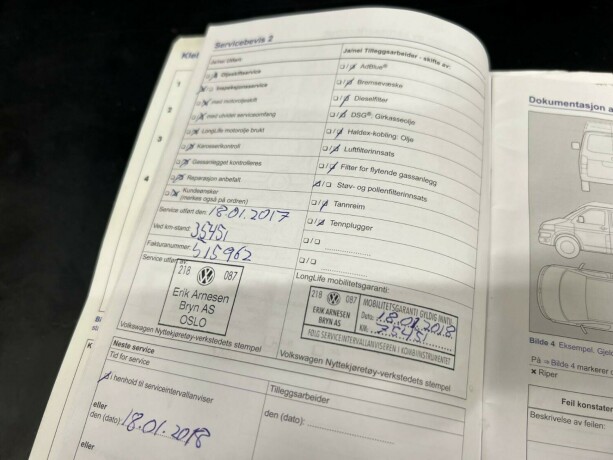 Servicebevis 2
Ja/nei Utført:
Oljeskiftservice
Inspeksjonsservice
med motoroljeskift
med utvidet serviceomfang
LongLife motorolje brukt
Karosserikontroll
Gassanlegget kontrolleres
Reparasjon anbefalt
Kundeønsker
(merkes også på ordren)
Service utført den: 18.01.2017
Ved km-stand: 35451
Fakturanummer: 515962
Service utført av:
218 087
Erik Arnesen
Bryn AS
OSLO
Volkswagen Nyttekjøretøy-verkstedets stempel
Ja/nei Tilleggsarbeider - skifte av:
AdBlue®
Bremsevæske
Dieselfilter
DSG®: Girkasseolje
Haldex-kobling: Olje
Luftfilterinnsats
Filter for flytende gassanlegg
Støv- og pollenfilterinnsats
Tannreim
Tennplugger
LongLife mobilitetsgaranti:
218 087
ERIK ARNESEN
BRYN AS
MOBILITETSGARANTI GYLDIG INNTIL
Dato: 18.01.2018
KM.
FØLG SERVICEINTERVALLANVISEREN I KOMBIINSTRUMENTET
Volkswagen Nyttekjøretøy-verkstedets stempel
Neste service
Tid for service
i henhold til serviceintervallanviser
eller
den (dato) 18.01.2018
eller
Tilleggsarbeider
den (dato):
1
2
3
4
Dokumentasjon a
Bilde 4 Eksempel, Gjeld
På ⇒ Bilde 4 markerer d
× Riper
Feil konstater
Beskrivelse av feilen: